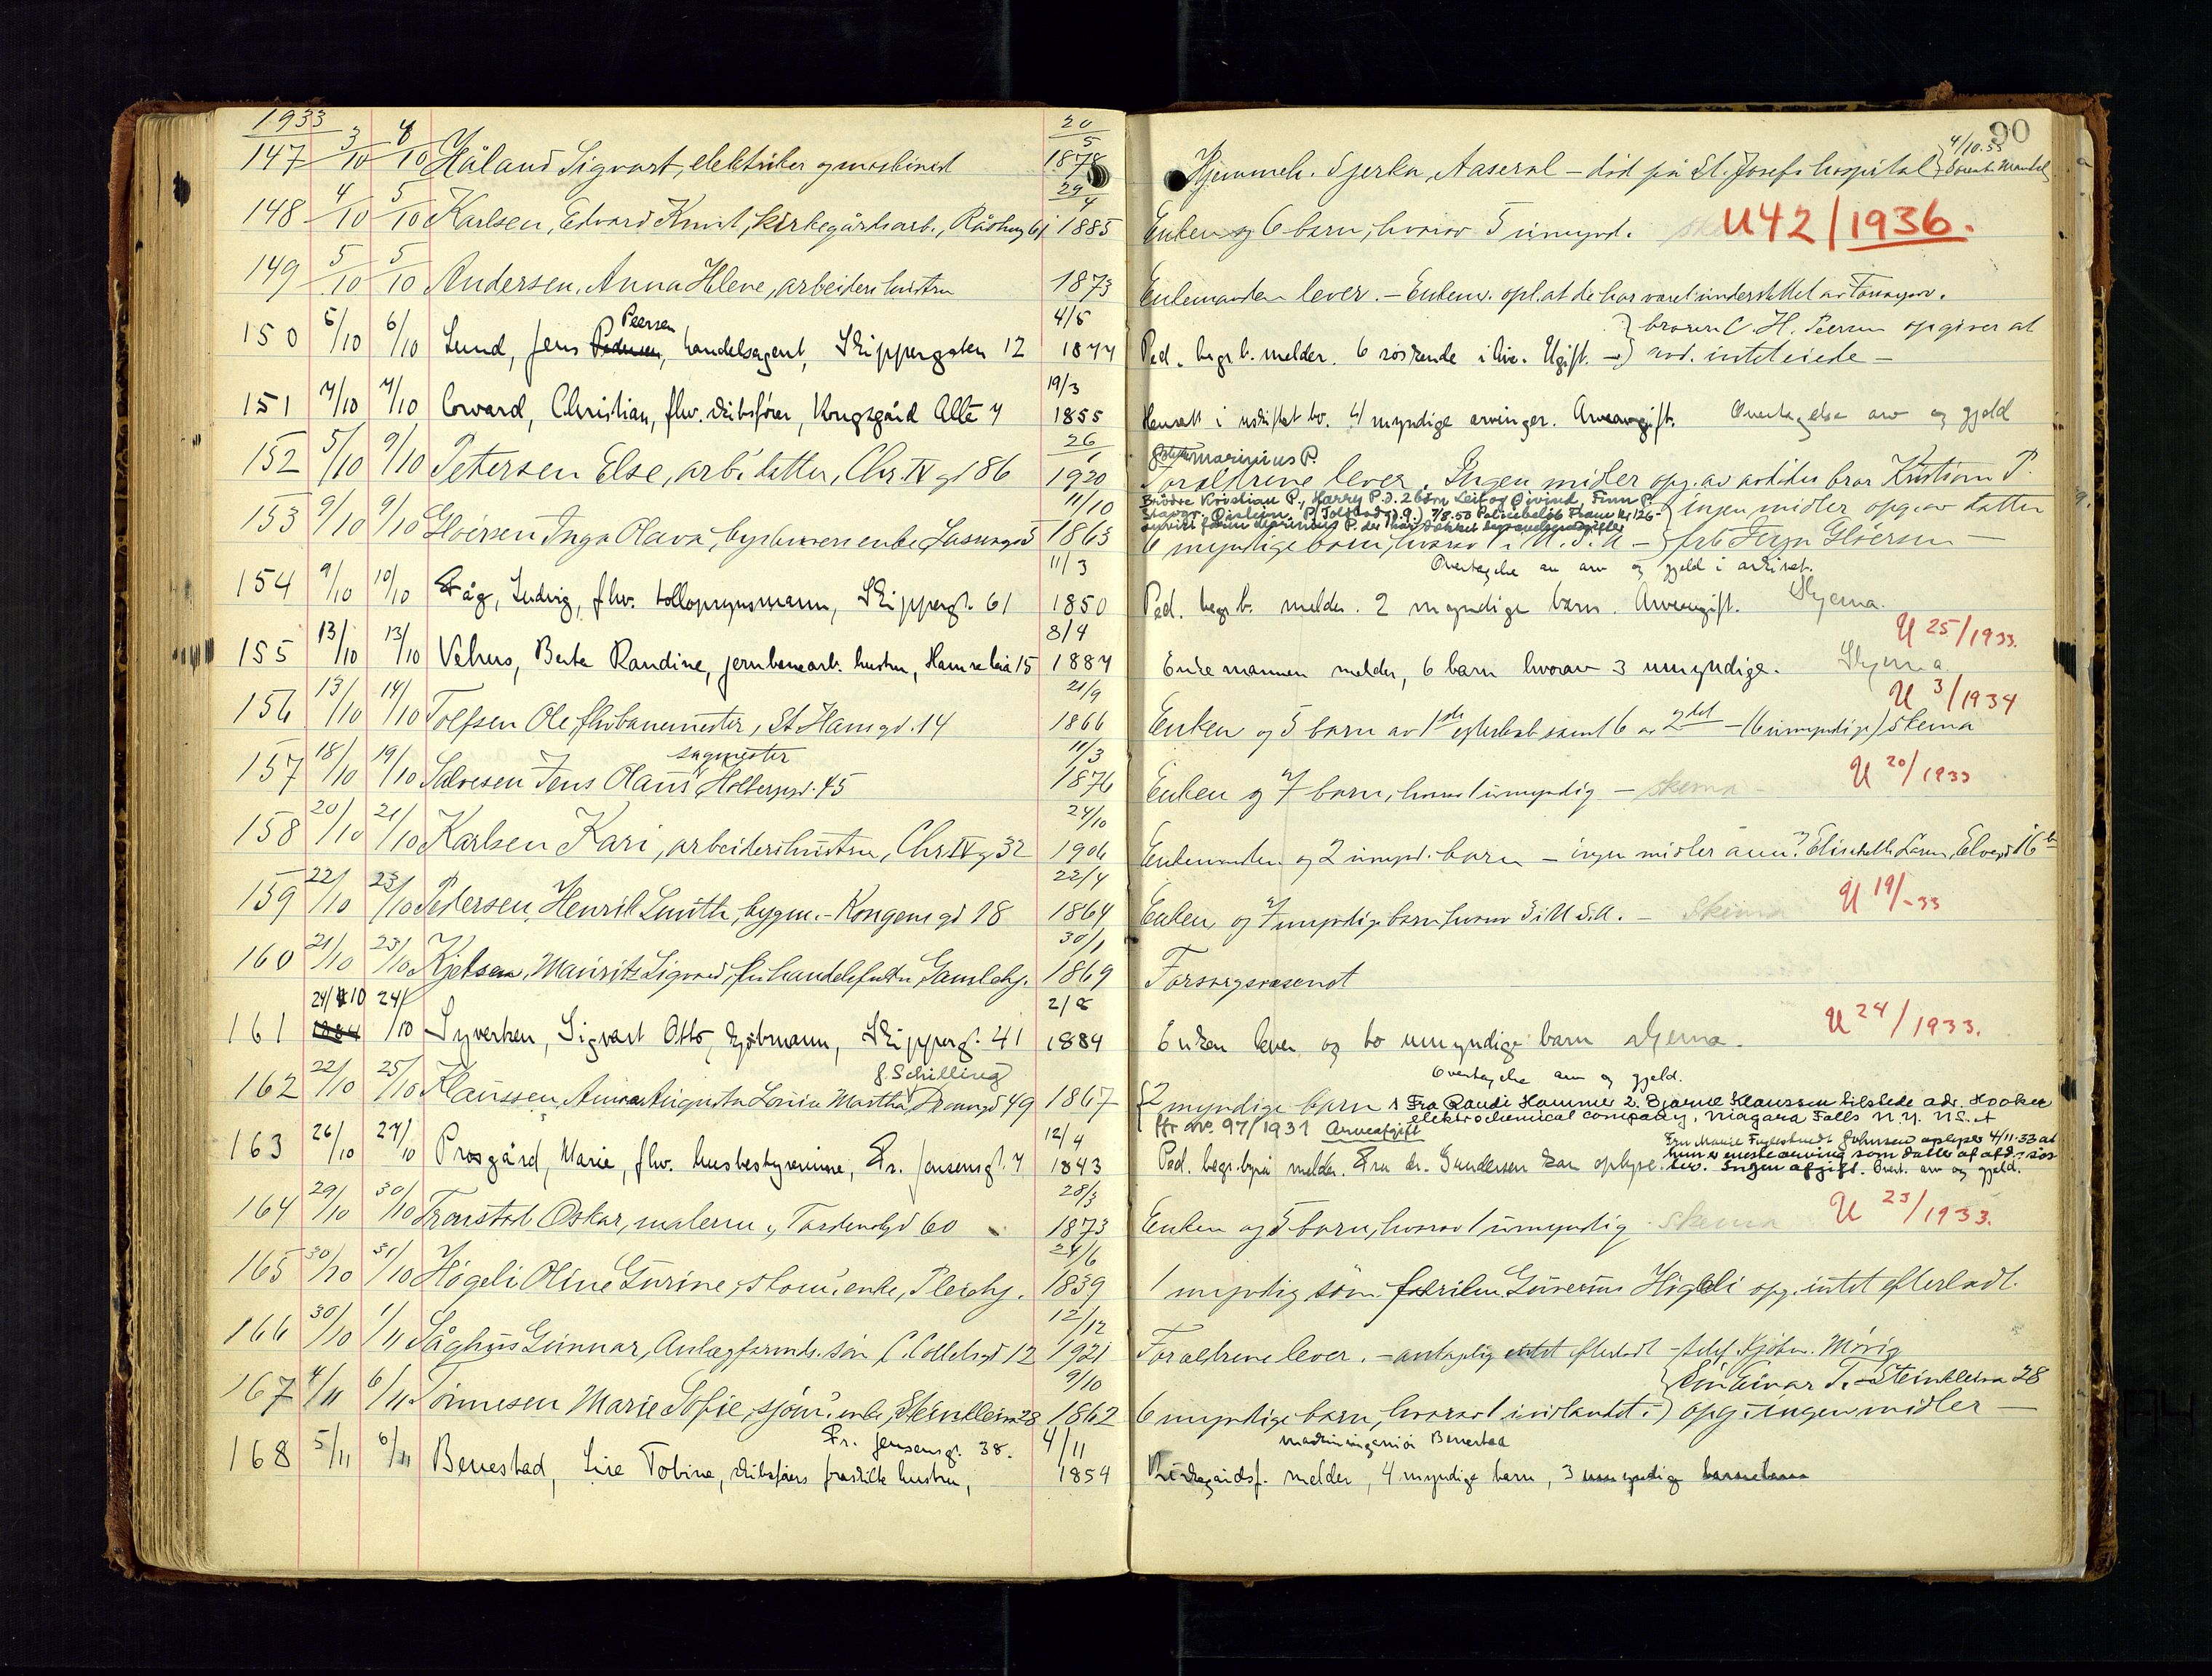 1933
90
147 3/10 4/10 Håland Sigvart, elektriker og maskinist 20/5 1878 Hjemmeh. Sjerka, Aaseral – død på St. Josefs hospital } 4/10.33 Mandal
148 4/10 5/10 Karlsen, Edvard Knut, kirkegårdsarb., 61 29/4 1885 Enken og 6 barn, hvorav 5 umynd. U 42/1936.
149 5/10 5/10 Andersen, Anna Helene, arbeiders hustru 1873 Enkemanden lever. – Enkem. opl. at de har været understøttet av
} broren C. H. Peersen opgiver at
150 5/10 6/10 Lund, Jens Pedersen Peersen, handelsagent, Skippergaten 12 4/5 1877 Pol. begr.b. melder. 6 søskende i live. Ugift. – } avd. intet eiede –
151 7/10 7/10 Corward, Christian, fhv. skibsfører, Kongsgård Allé 7 19/3 1855 Hensatt i uskiftet bo. 4 myndige arvinger. Arveavgift. Overtagelse arv og gjeld
152 5/10 9/10 Petersen Else, arb. datter, Chr. IV gt 86 26/ 1920 Marinius P.
Foreldrene lever. Ingen midler opg. av avdødes bror Kristian P.
Brødre Kristian P., Harry P. 2 børn Leif og Øivind, Finn P.
7/8.50 Politibeløb Fram kr 126-
153 9/10 9/10 Gloersen Inga Olava, enke 11/10 1863 6 myndige barn, hvorav 1 i U.S.A – } ingen midler opg. av datter frk Gloersen –
Overtagelse av arv og gjeld i arkivet.
154 9/10 10/10 Fåg, Ludvig, fhv. tollopsynsmann, Skippergt. 61 11/3 1850 Pol. begr.b. melder. 2 myndige barn. Arveavgift. Skjema.
155 13/10 13/10 Vehus, Berte Randine, jernbanearb. hustru, 15 8/4 1887 Enkemannen melder, 6 barn hvorav 3 umyndige. Skjema U 25/1933.
156 13/10 14/10 Tolfsen Ole fhv banemester, St Hansgt. 14 21/9 1866 Enken og 5 barn av 1ste egteskab samt 6 av 2det – (6 umyndige) skema U 3/1934
157 18/10 19/10 Salvesen Jens Olaus sagmester Holbergsgt. 45 11/3 1876 Enken og 7 barn, hvorav 1 umyndig – skema U 20/1933
158 20/10 21/10 Karlsen Kari, arbeidershustru, Chr. IV g 32 24/10 1906 Enkemanden og 2 umynd. barn – ingen midler Elvegt 16 b
159 22/10 23/10 Pedersen, Henrik Smith, bygm. – Kongensgt 18 22/4 1864 Enken og 7 myndige barn hvorav 3 i U.S.A. – Skema U 19/-33
160 21/10 23/10 Kjelsen, Mauritz Sigvard, Gamlehj. 30/1 1869 Forsorgsvæsenet
161 24/10 24/10 Syvertsen, Sigvart Otto, sjømann, Skippergt. 41 2/8 1884 Enken lever og to umyndige barn skjema. U 24/1933.
Overtagelse arv og gjeld.
162 22/10 25/10 Klaussen, Anna Augusta Lovise Martha f. Schilling Dronngt 49 1867 { 2 myndige barn 1 Fra Randi Hammer 2. Bjarne Klaussen tilstede adr. Hooker
elektrochemical company, Niagara Falls N.Y. U.S.A
ftr no. 97/1931 Arveafgift
163 26/10 27/10 Prosgård, Marie, fhv. husbestyrerinne, Fr. Jensensgt. 7 12/4 1843 Pol. begr.byrå melder. Fru dr. Gundersen kan oplyse.
Fru Marie Johnsen oplyser 4/11-33 at
hun er eneste arving som datter af afd. søs
ter. Ingen afgift. Overt. arv og gjeld.
164 29/10 30/10 Tronstad Oskar, malerm., Tordenskj.gt 60 28/3 1873 Enken og 5 barn, hvorav 1 umyndig. skema U 23/1933.
165 30/10 31/10 Høgeli Oline Gurine, enke, Pleiehj. 24/6 1839 1 myndig søn Guverius Høgeli opg. intet efterladt.
166 30/10 1/11 Såghus Gunnar, Anlægsformds. søn C. Colletsgt 12 12/12 1921 Foreldrene lever. – antagelig intet efterladt –
167 4/11 6/11 Tønnesen Marie Sofie, sjøm. enke, Steinkleiva 28 9/10 1862 6 myndige barn, hvorav 1 i utlandet. } søn Einar T. – Steinkleiva 28 opg. ingen midler –
168 5/11 6/11 Benestad, Lise Tobine, skibsførers fraskilte hustru, Fr. Jensensgt. 38. 4/11 1854 Kirkegårdsf. melder, 4 myndige barn, 3 umyndig barnebarn
maskiningeniør Benestad